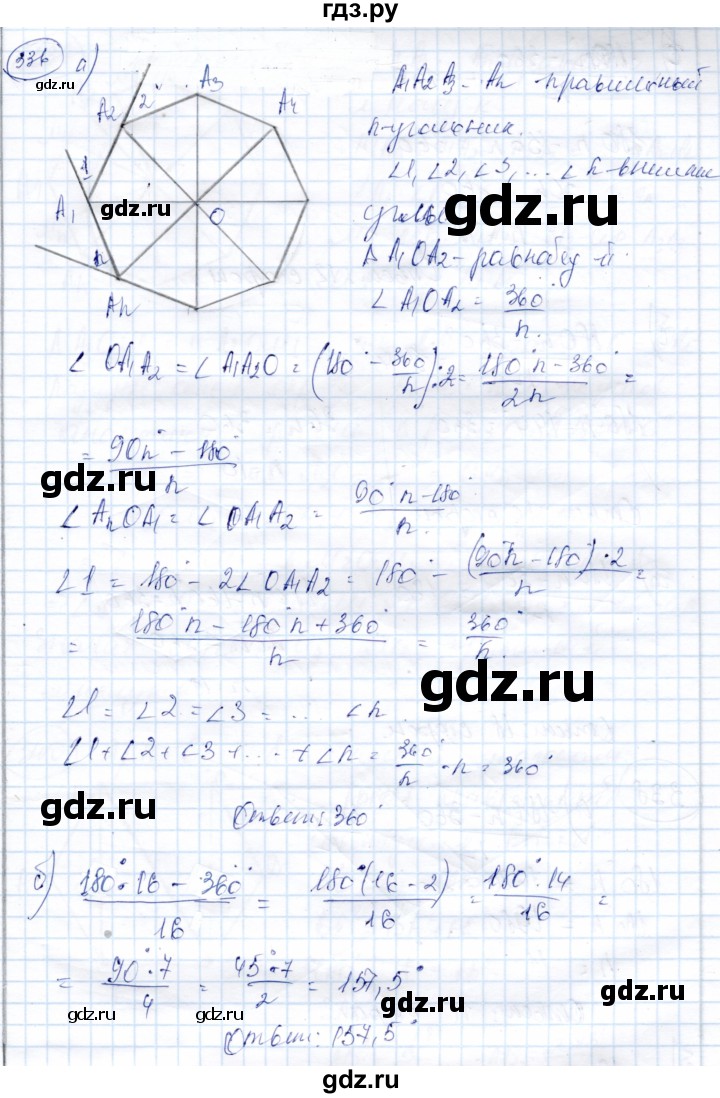 гдз.ру
336 а)
gdz.ru
A₁ A₂ A₃ A₄ Aₙ O 1 2 n
gdz.ru
A₁A₂A₃... Aₙ правильный
n-угольник.
∠1, ∠2, ∠3, ... ∠n - внешние
углы
Δ A₁OA₂ - равнобед-й.
∠A₁OA₂ = 360°/n.
gdz.ru
∠OA₁A₂ = ∠A₁A₂O = (180° - 360°/n) : 2 = (180°n - 360°)/2n =
= (90n° - 180°)/n
gdz.ru
gdz.ru
∠AₙOA₁ = ∠OA₁A₂ = (90°n - 180°)/n.
∠1 = 180° - 2∠OA₁A₂ = 180° - (90°n - 180°)·2/n =
= (180°n - 180°n + 360°)/n = 360°/n.
gdz.ru
∠1 = ∠2 = ∠3 = ... ∠n
∠1 + ∠2 + ∠3 + ... + ∠n = 360°/n · n = 360°
gdz.ru
Ответ: 360°
б) (180°·16 - 360°)/16 = 180°(16 - 2)/16 = 180°·14/16 =
= 90°·7/4 = 45°·7/2 = 157,5°
gdz.ru
gdz.ru
gdz.ru
Ответ: 157,5°
gdz.ru